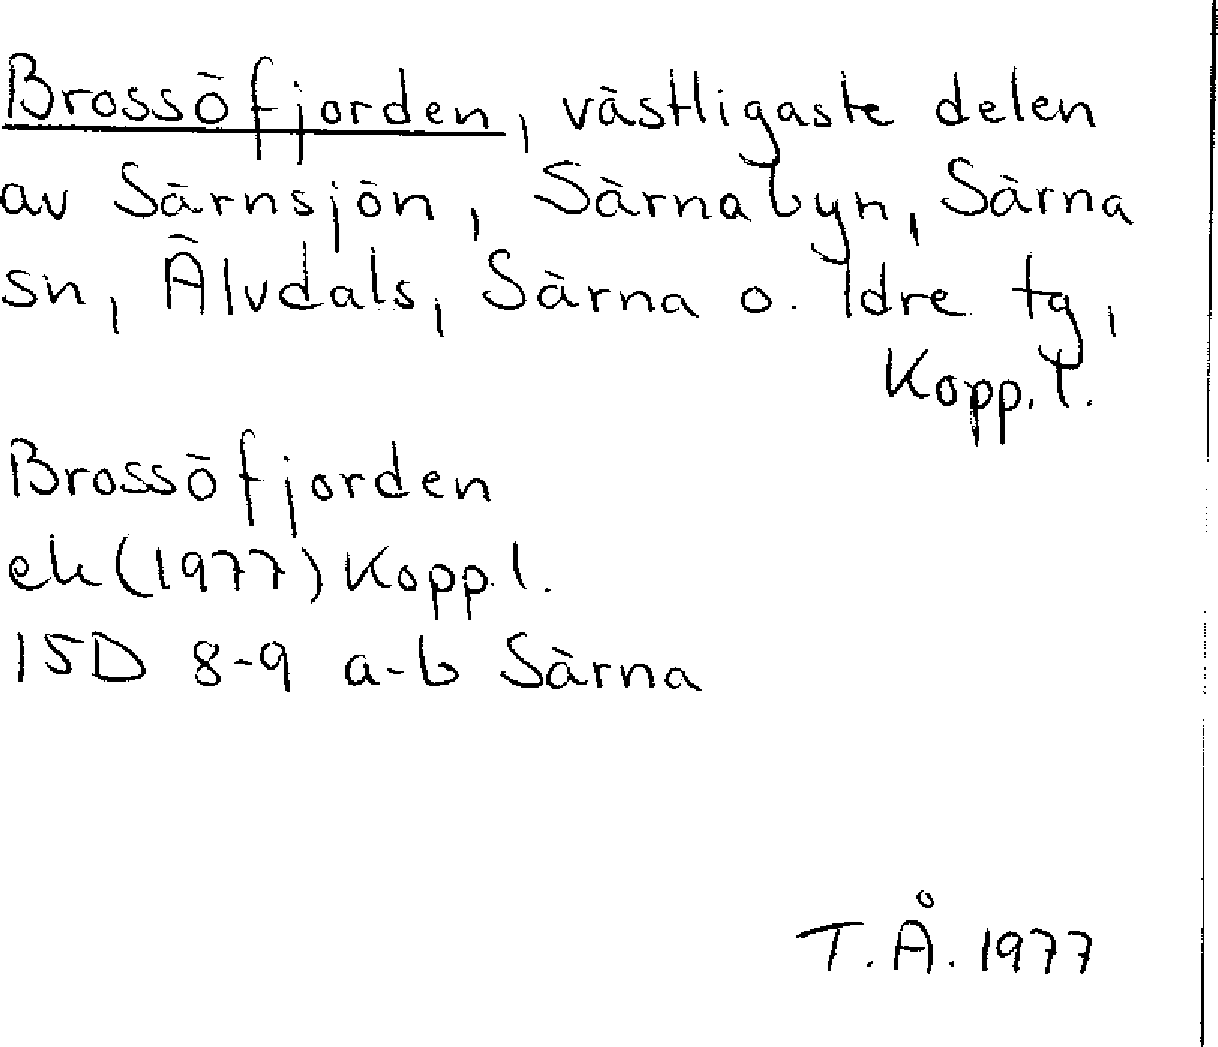 Brossöfjorden, västligaste delen
av Särnsjön, Särnabyn, Särna
sn, Älvdals, Särna o. Idre tg,
Kopp. l.
Brossöfjorden
ek (1977) Kopp l.
15D 8-9 a-b Särna
T. Å. 1977